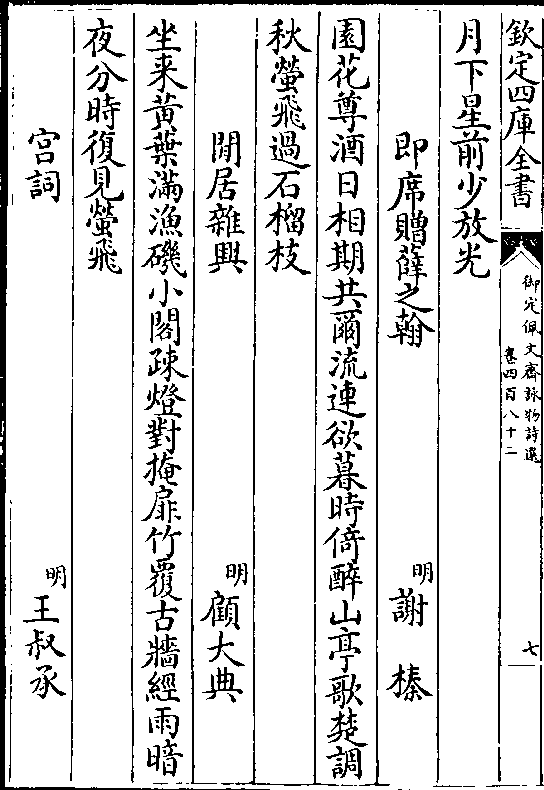 欽定四庫全書
御定佩文齋詠物詩選
卷四百八十二
七
月下星前少放光
即席贈薛之翰
明
謝榛
園花尊酒日相期共爾流連欲暮時倚醉山亭歌楚調
秋螢飛過石榴枝
閒居雜興
明
顧大典
坐来黃葉滿漁磯小閣疎燈對掩扉竹覆古牆經雨暗
夜分時復見螢飛
宮詞
明
王叔承